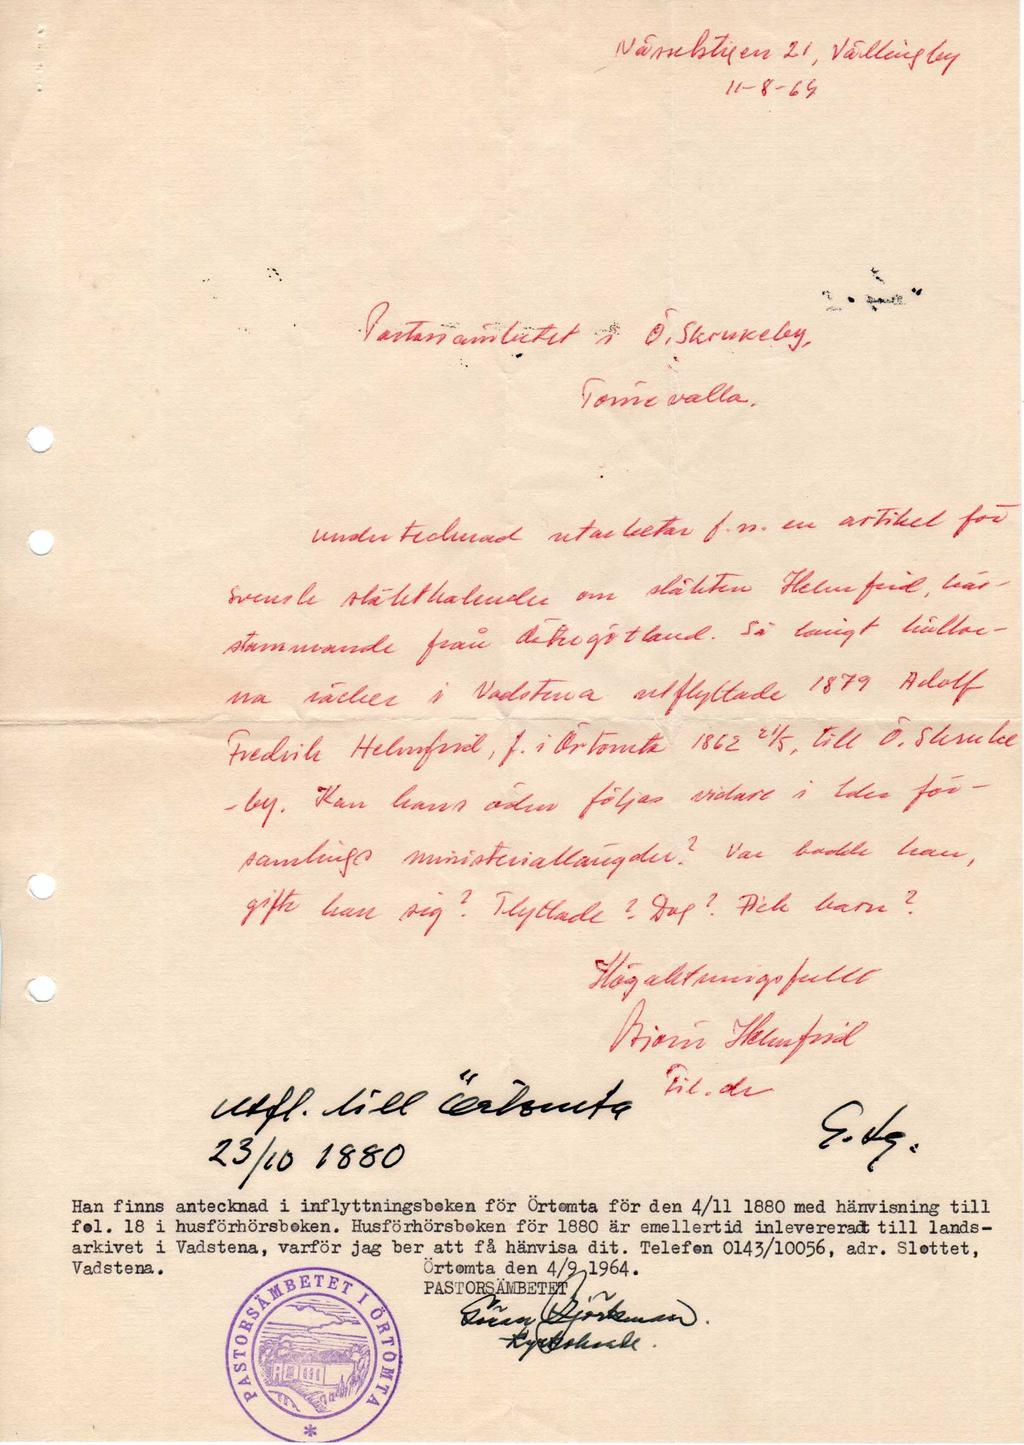 Nässelstigen 21, Vällingby
11-8-64
Pastorsämbetet i Ö. Skrukeby,
Törnevalla.
undertecknad utarbetar f. n. en artikel för
svenska släktkalender om släkten Helmfrid, här-
stammande från Östergötland. Så långt källor-
na räcker i Vadstena utflyttade 1879 Adolf
Fredrik Helmfrid, f. i Örtomta 1862 21/5, till Ö. Skruke
-by. Kan hans öden följas vidare i Eder för-
samlings ministeriallängder? Var bodde han,
gifte han sig? Flyttade? Dog? Fick barn?
Högaktningsfullt
Björn Helmfrid
Fil. dr
utfl. till Örtomta
23/10 1880
Han finns antecknad i inflyttningsboken för Örtomta för den 4/11 1880 med hänvisning till
fol. 18 i husförhörsboken. Husförhörsboken för 1880 är emellertid inlevererad till lands-
arkivet i Vadstena, varför jag ber att få hänvisa dit. Telefon 0143/10056, adr. Slottet,
Vadstena.
Örtomta den 4/9 1964.
PASTORSÄMBETET
Göran Björkman.
Kyrkoherde.
PASTORSÄMBETET I ÖRTOMTA